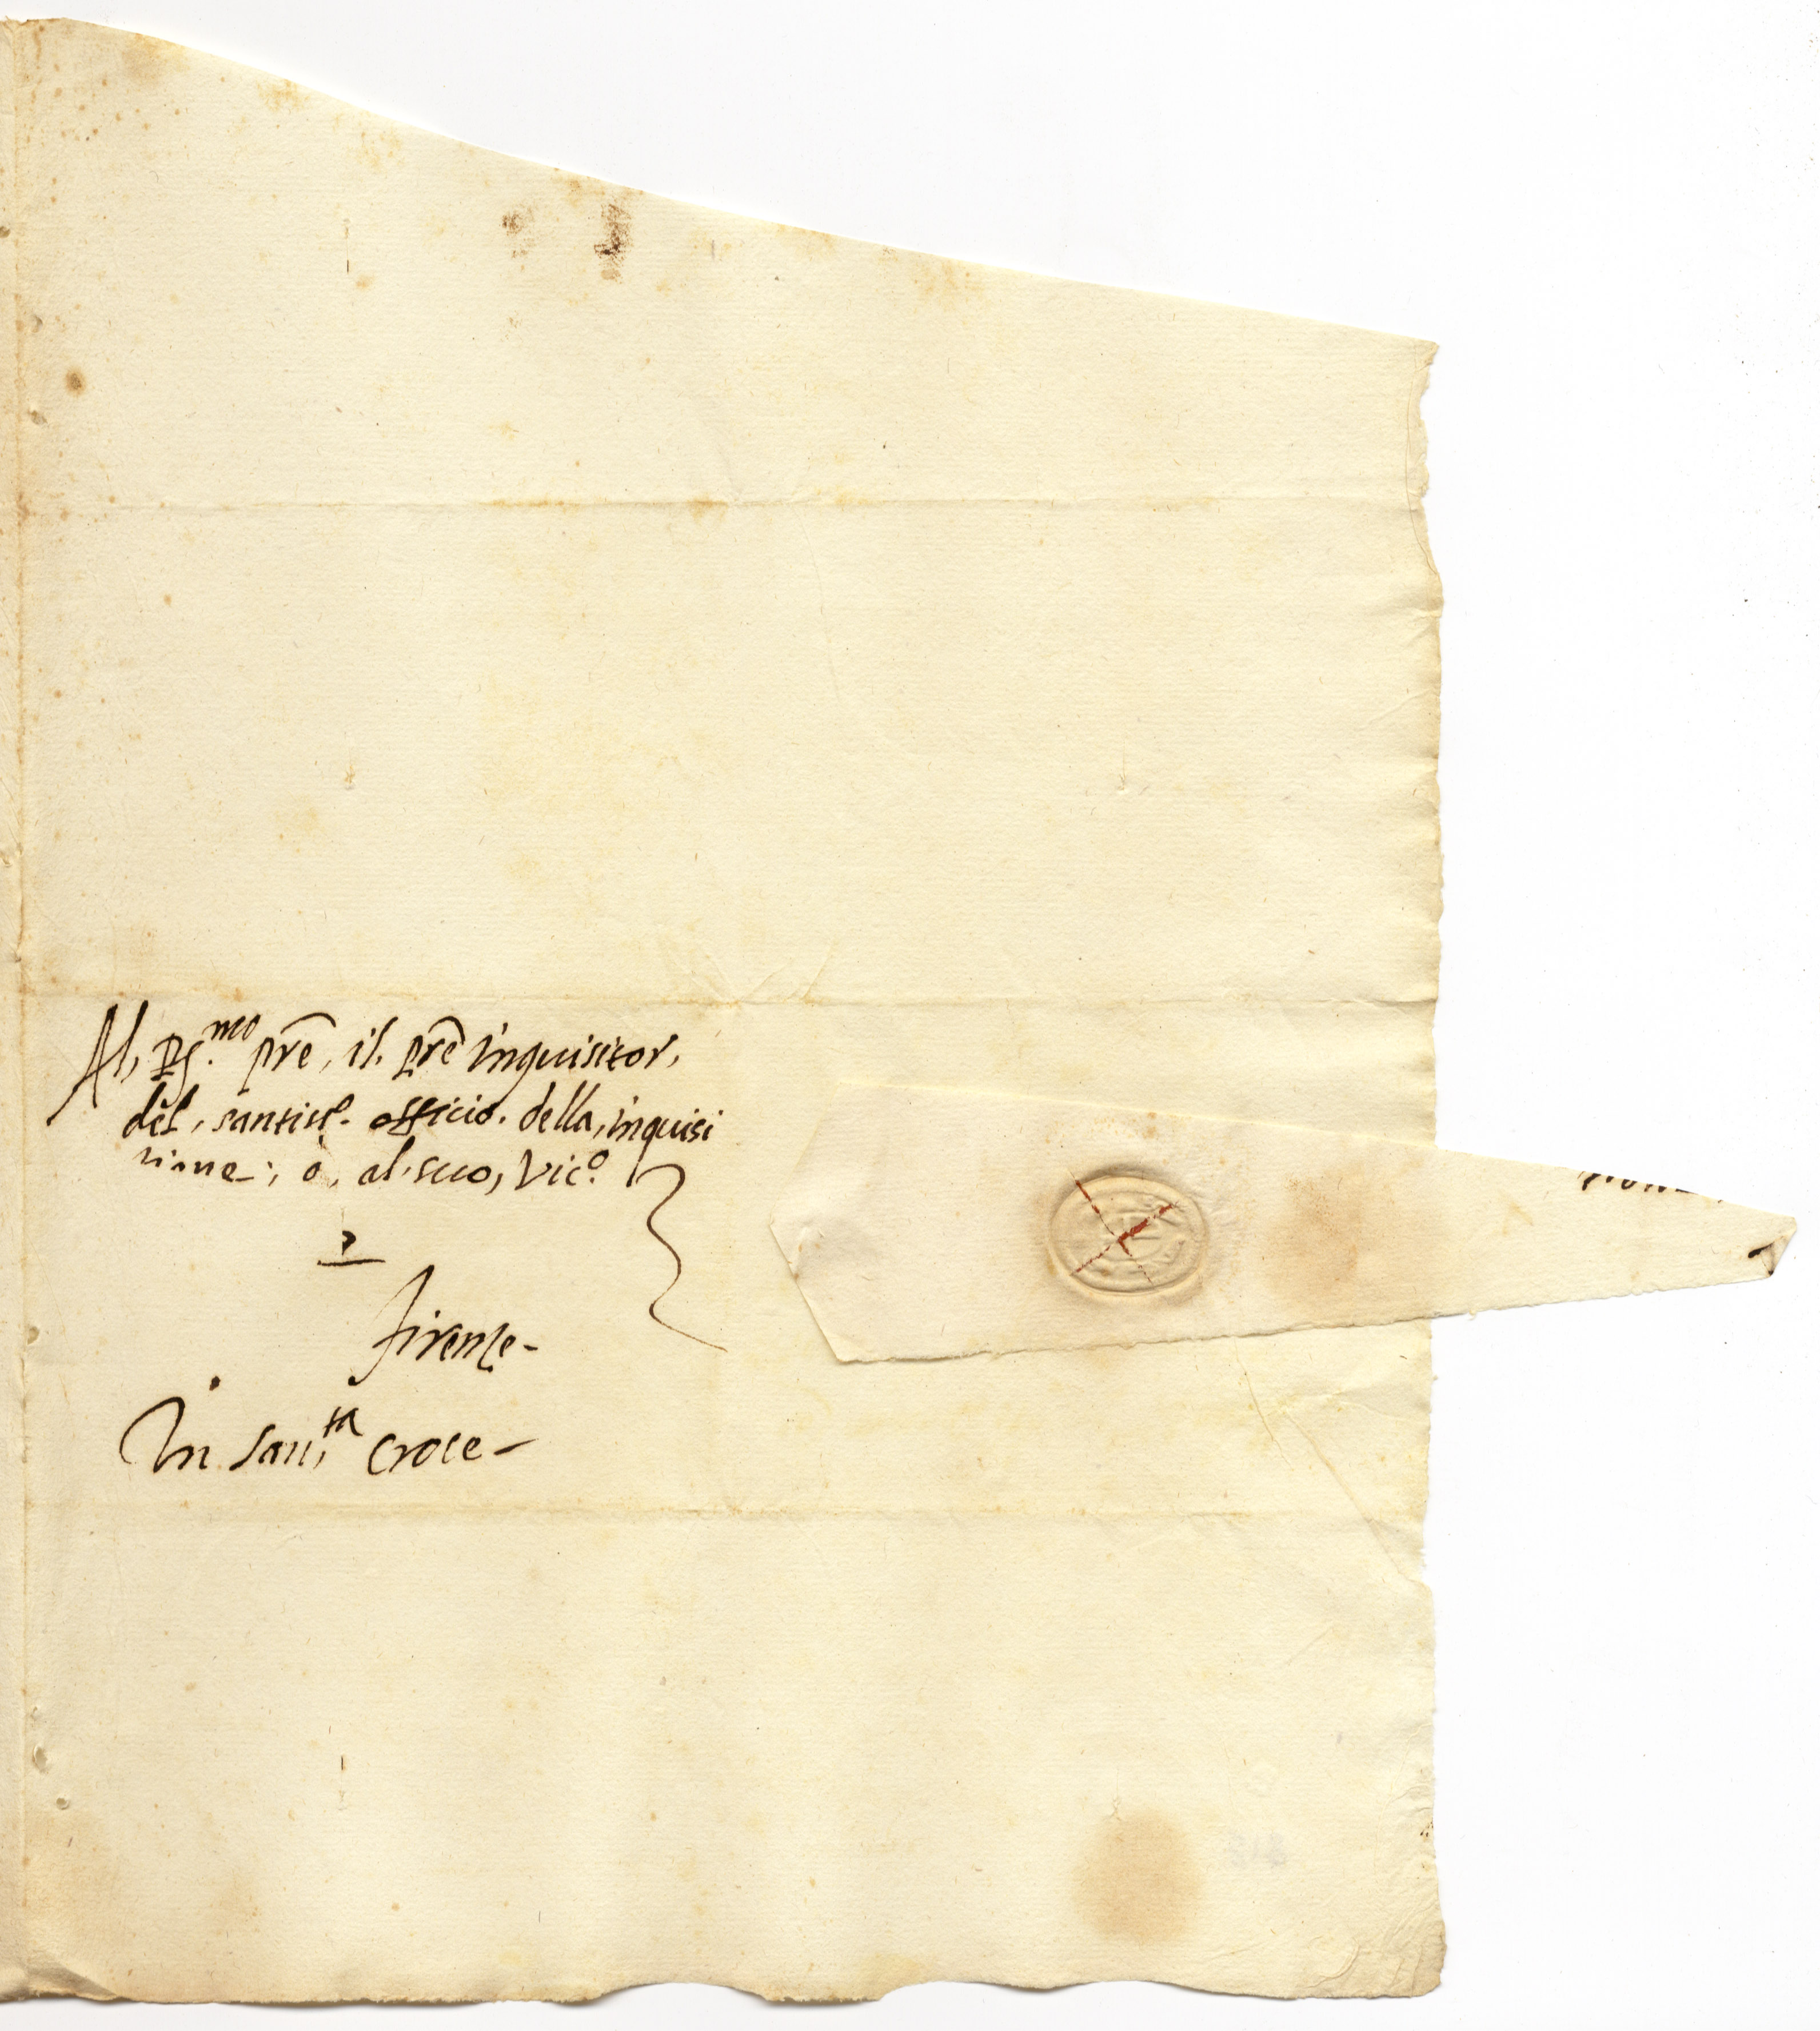 Al, R.mo prē, il, prē inquisitor,
del, santiss.o officio. della, inquisi
tione; ò, al suo, Vic.o
firenze-
In San,ta Croce-